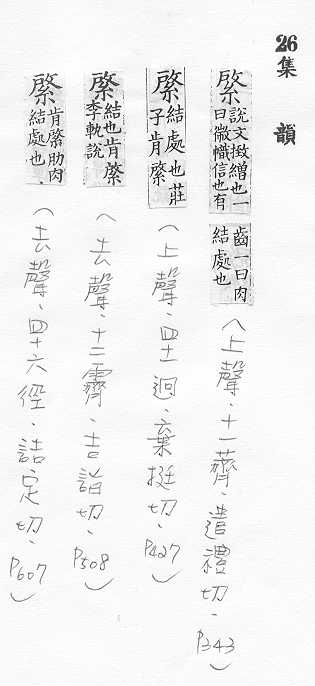 26集 韻
綮說文㨖繒也一曰徽幟信也有齒一曰肉結處也
(上聲．十一薺．遣禮切．P343)
綮結處也莊子肯綮
(上聲．四十一迥．棄挺切．P427)
綮結也肯綮李軌說
(去聲．十二霽．吉詣切．P508)
綮肯綮肋肉結處也
(去聲．四十六徑．詰定切．P607)